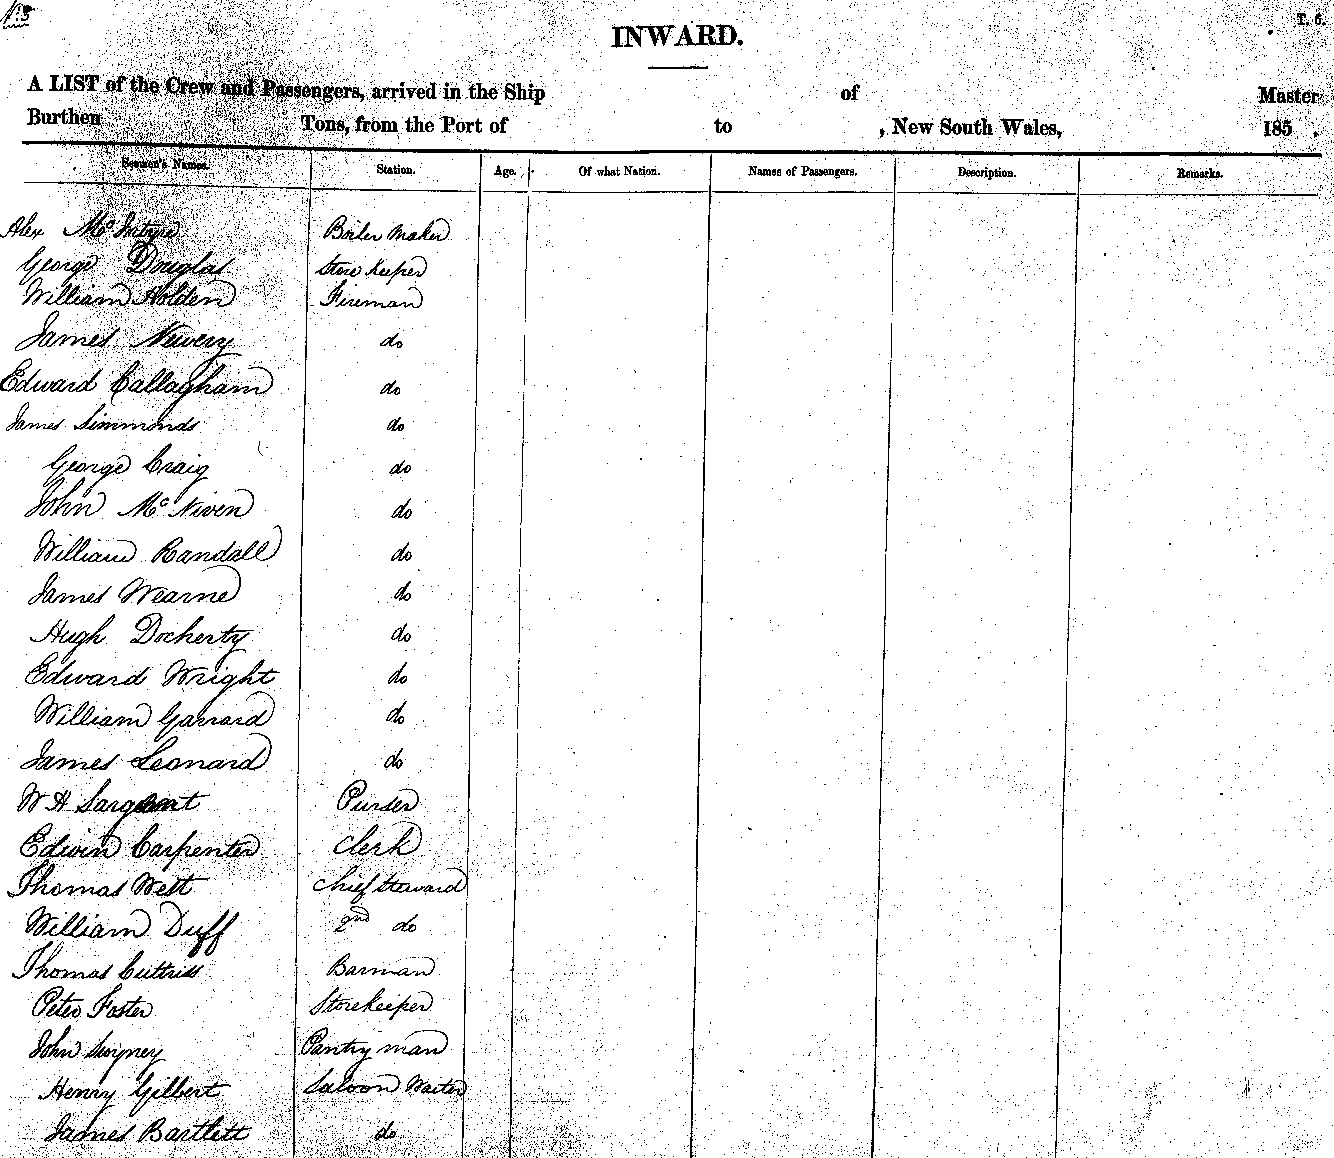 No 3
T. 6.
INWARD.
A LIST of the Crew and Passengers, arrived in the Ship of Master
Burthen Tons, from the Port of to , New South Wales, 185 .
Seamen's Names. Station. Age. Of what Nation. Names of Passengers. Description. Remarks.
Alex McIntyre Boiler Maker
George Douglas Store Keeper
William Holden Fireman
James Newery do
Edward Callagham do
James Simmonds do
George Craig do
John McNiven do
William Randall do
James Wearne do
Hugh Docherty do
Edward Wright do
William Garrard do
James Leonard do
W H Sargent Purser
Edwin Carpenter Clerk
Thomas West Chief Steward
William Duff 2nd do
Thomas Cuttriss Barman
Peter Foster Storekeeper
John Pantry man
Henry Gilbert Saloon Waiter
James Bartlett do